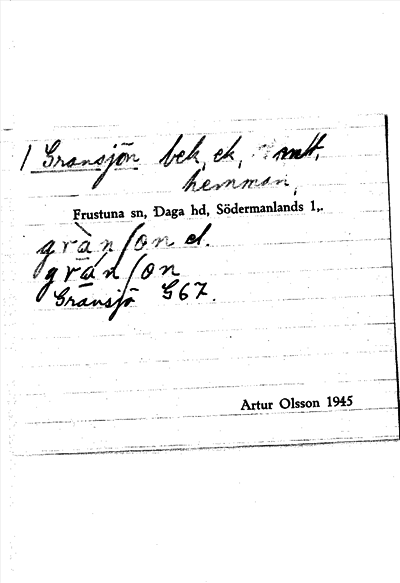 1 Gransjön bek, ek, mtt,
hemman,
Frustuna sn, Daga hd, Södermanlands l,.
gràn/on el.
grán/on
Gransjö G67.
Artur Olsson 1945